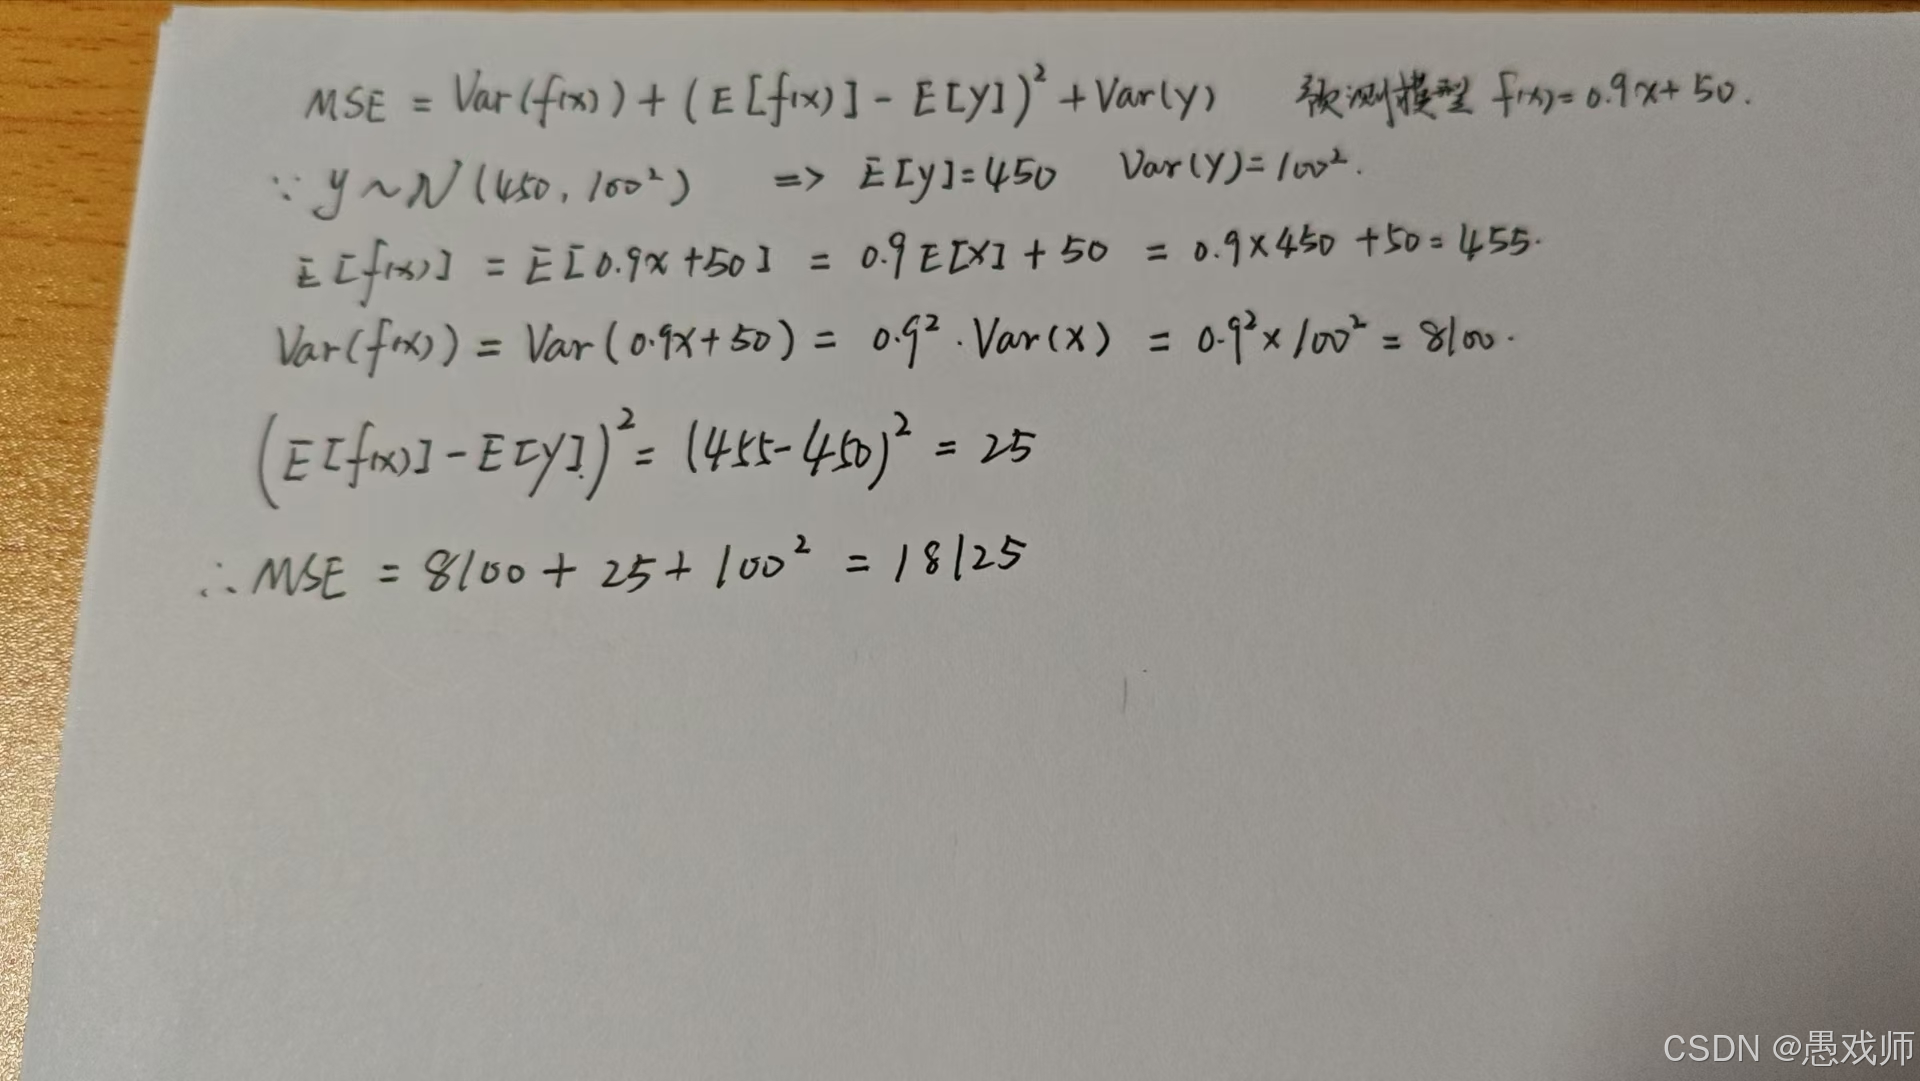 MSE = Var(f(x)) + (E[f(x)] - E[y])² + Var(y) 预测模型 f(x)=0.9x+50.
∵ y~N(450, 100²) => E[y]=450 Var(y)=100².
E[f(x)] = E[0.9x+50] = 0.9E[x]+50 = 0.9×450+50=455.
Var(f(x)) = Var(0.9x+50) = 0.9²·Var(x) = 0.9²×100² = 8100.
(E[f(x)]-E[y])² = (455-450)² = 25
∴ MSE = 8100 + 25 + 100² = 18125
CSDN @愚戏师